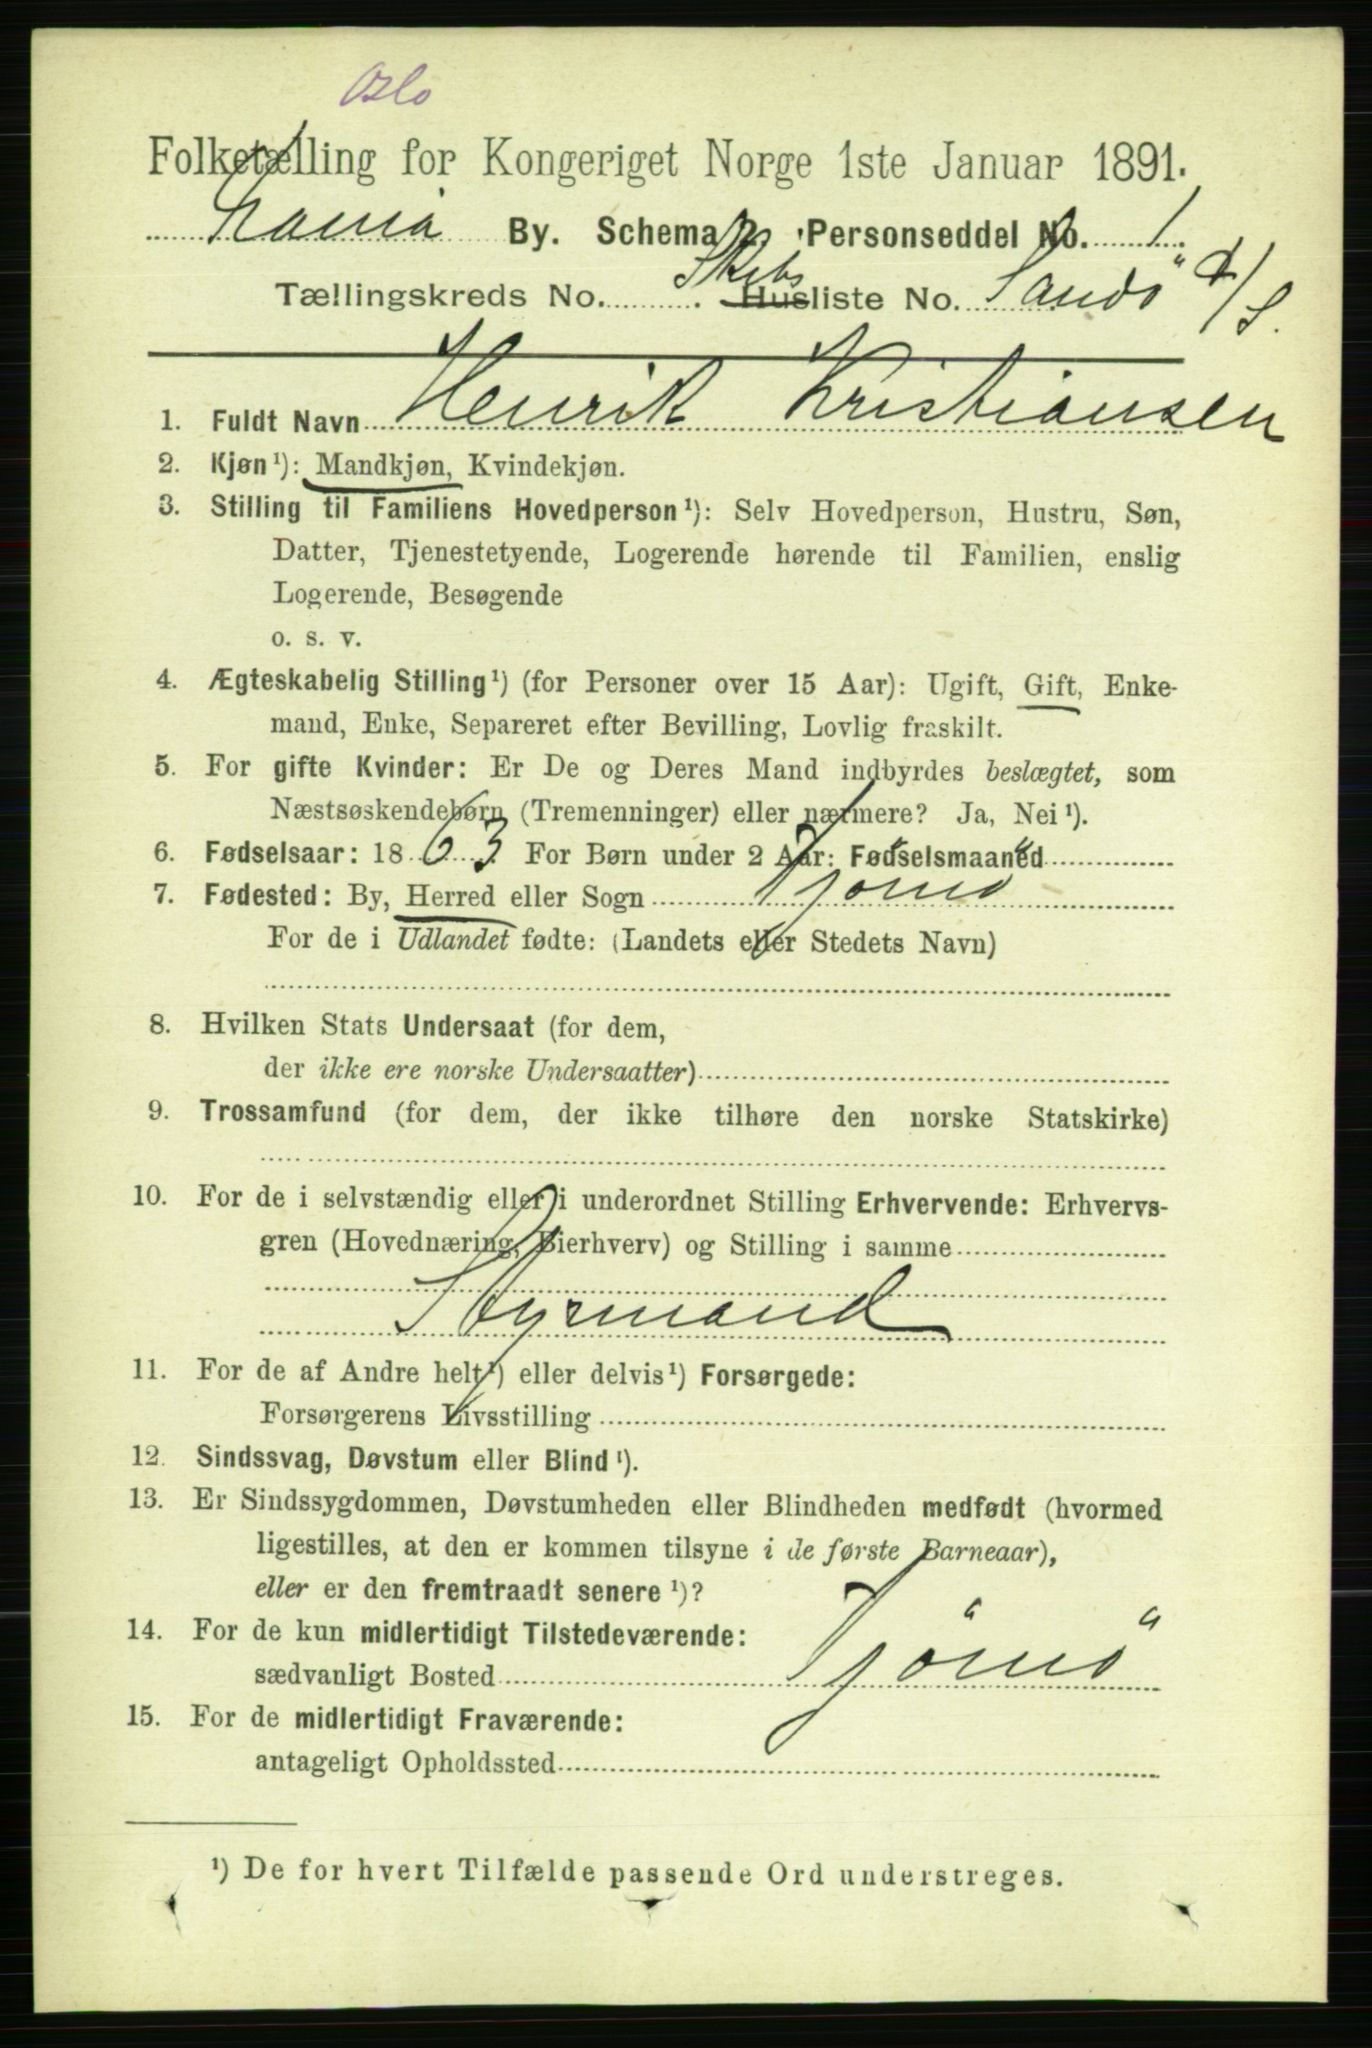 Oslo
Folketælling for Kongeriget Norge 1ste Januar 1891.
By. Schema 2, Personseddel No. 1.
Tællingskreds No. . Skibs Husliste No. Sandö
1. Fuldt Navn Henrik Kristiansen
2. Kjøn¹): Mandkjøn, Kvindekjøn.
3. Stilling til Familiens Hovedperson¹): Selv Hovedperson, Hustru, Søn,
Datter, Tjenestetyende, Logerende hørende til Familien, enslig
Logerende, Besøgende
o. s. v.
4. Ægteskabelig Stilling¹) (for Personer over 15 Aar): Ugift, Gift, Enke-
mand, Enke, Separeret efter Bevilling, Lovlig fraskilt.
5. For gifte Kvinder: Er De og Deres Mand indbyrdes beslægtet, som
Næstsøskendebørn (Tremenninger) eller nærmere? Ja, Nei¹).
6. Fødselsaar: 1863. For Børn under 2 Aar: Fødselsmaaned
7. Fødested: By, Herred eller Sogn Tjömö
For de i Udlandet fødte: (Landets eller Stedets Navn)
8. Hvilken Stats Undersaat (for dem,
der ikke ere norske Undersaatter)
9. Trossamfund (for dem, der ikke tilhøre den norske Statskirke)
10. For de i selvstændig eller i underordnet Stilling Erhvervende: Erhvervs-
gren (Hovednæring, Bierhverv) og Stilling i samme
Styrmand
11. For de af Andre helt¹) eller delvis¹) Forsørgede:
Forsørgerens Livsstilling
12. Sindssvag, Døvstum eller Blind¹).
13. Er Sindssygdommen, Døvstumheden eller Blindheden medfødt (hvormed
ligestilles, at den er kommen tilsyne i de første Barneaar),
eller er den fremtraadt senere¹)?
14. For de kun midlertidigt Tilstedeværende:
sædvanligt Bosted Tjömö
15. For de midlertidigt Fraværende:
antageligt Opholdssted
¹) De for hvert Tilfælde passende Ord understreges.